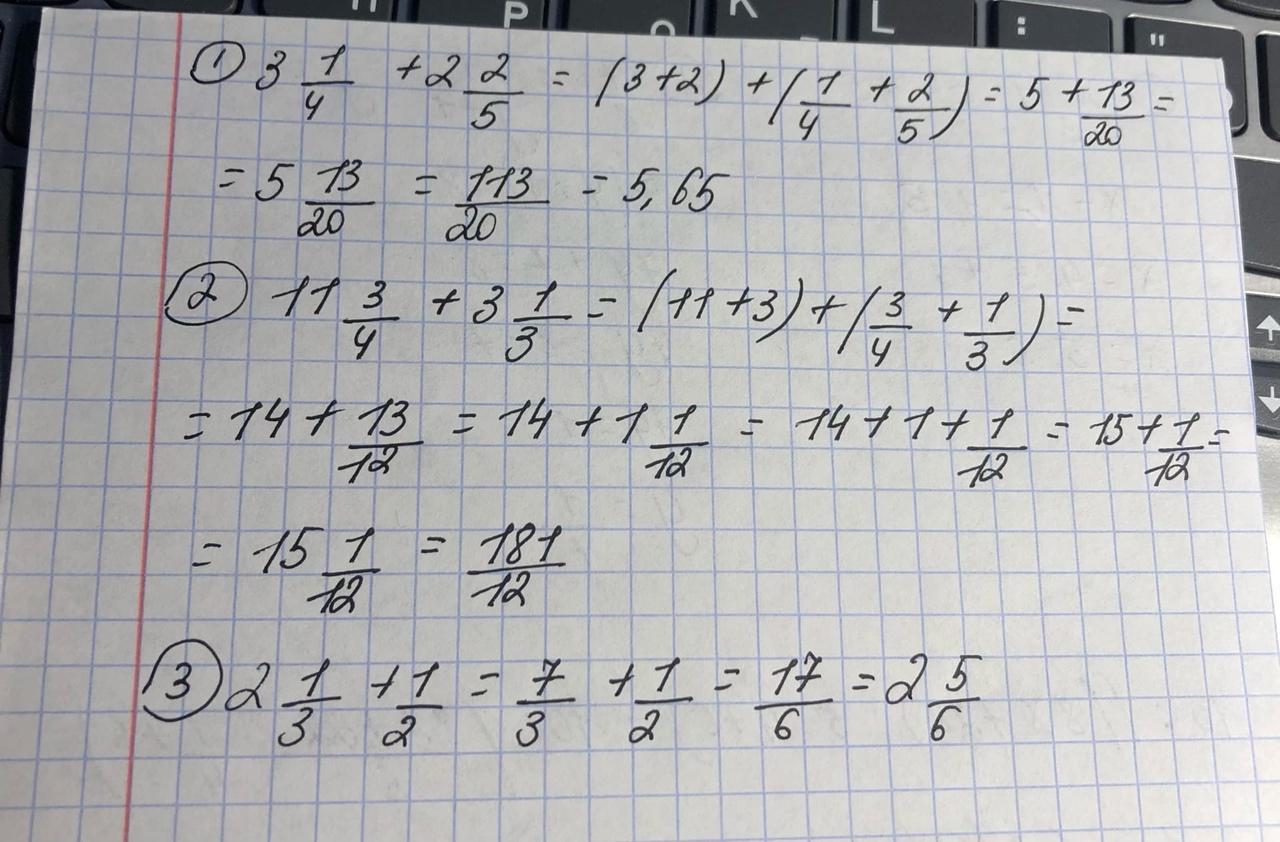 P K L : "
① 3 1/4 + 2 2/5 = (3+2) + (1/4 + 2/5) = 5 + 13/20 =
= 5 13/20 = 113/20 = 5,65
② 11 3/4 + 3 1/3 = (11+3) + (3/4 + 1/3) =
= 14 + 13/12 = 14 + 1 1/12 = 14 + 1 + 1/12 = 15 + 1/12 =
= 15 1/12 = 181/12
③ 2 1/3 + 1/2 = 7/3 + 1/2 = 17/6 = 2 5/6